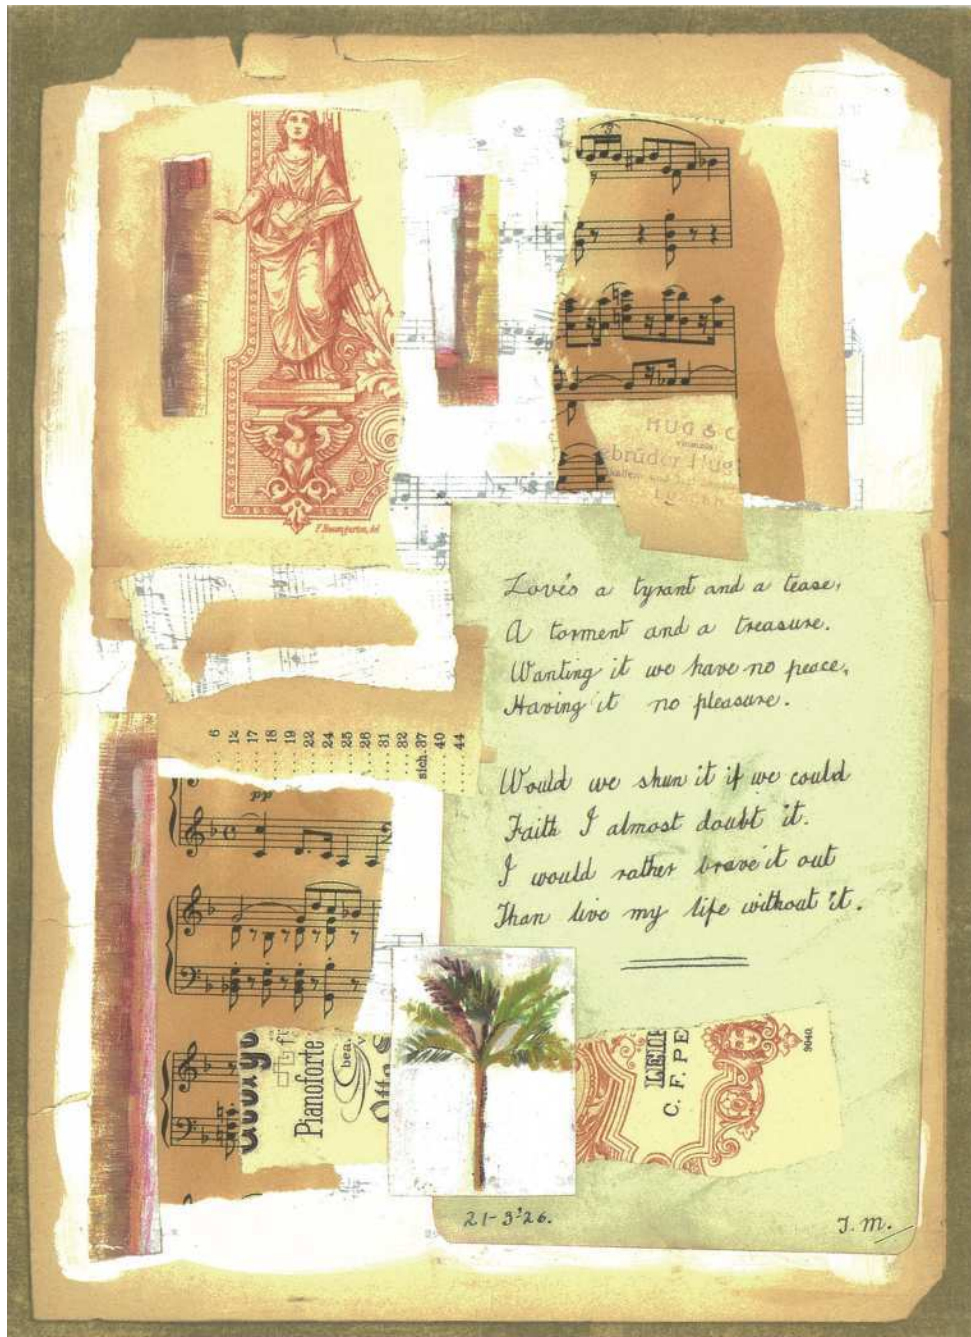 F. Baumgarten, del
HUG & C
vormals
ebrüder Hug
Love's a tyrant and a tease,
A torment and a treasure.
Wanting it we have no peace,
Having it no pleasure.
Would we shun it if we could
Faith I almost doubt it.
I would rather brave it out
Than live my life without it.
. . . 6
. . . 12
. . . 17
. . . 18
. . . 19
. . . 22
. . . 24
. . . 25
. . . 28
. . . 31
. . . 32
sich. 37
. . . 40
. . . 44
für
Pianoforte
bea
Otto
LEIP
C. F. PE
9040
21-3-26.
J. M.